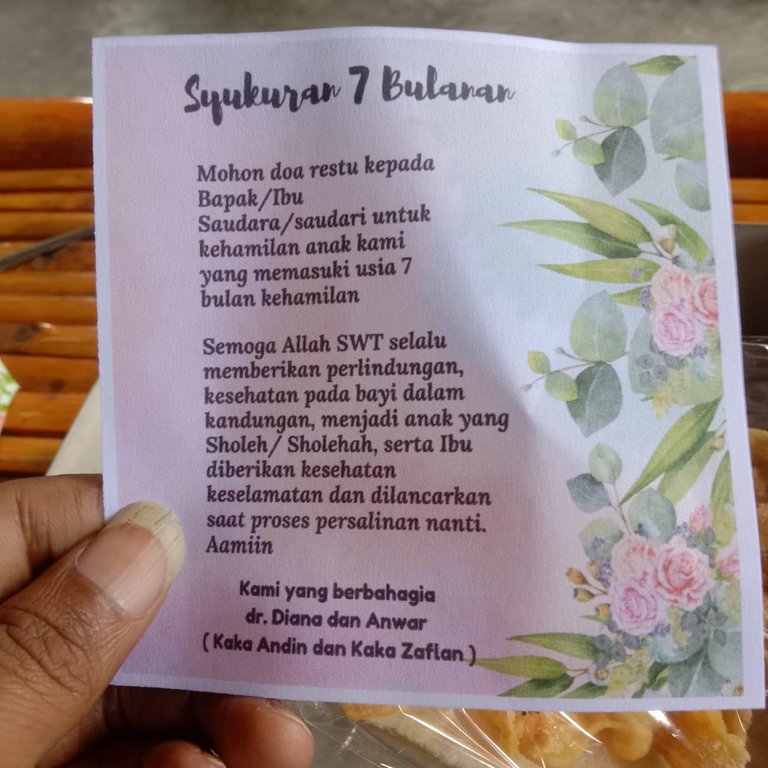 Syukuran 7 Bulanan
Mohon doa restu kepada
Bapak/Ibu
Saudara/saudari untuk
kehamilan anak kami
yang memasuki usia 7
bulan kehamilan
Semoga Allah SWT selalu
memberikan perlindungan,
kesehatan pada bayi dalam
kandungan, menjadi anak yang
Sholeh/ Sholehah, serta Ibu
diberikan kesehatan
keselamatan dan dilancarkan
saat proses persalinan nanti.
Aamiin
Kami yang berbahagia
dr. Diana dan Anwar
( Kaka Andin dan Kaka Zaflan )